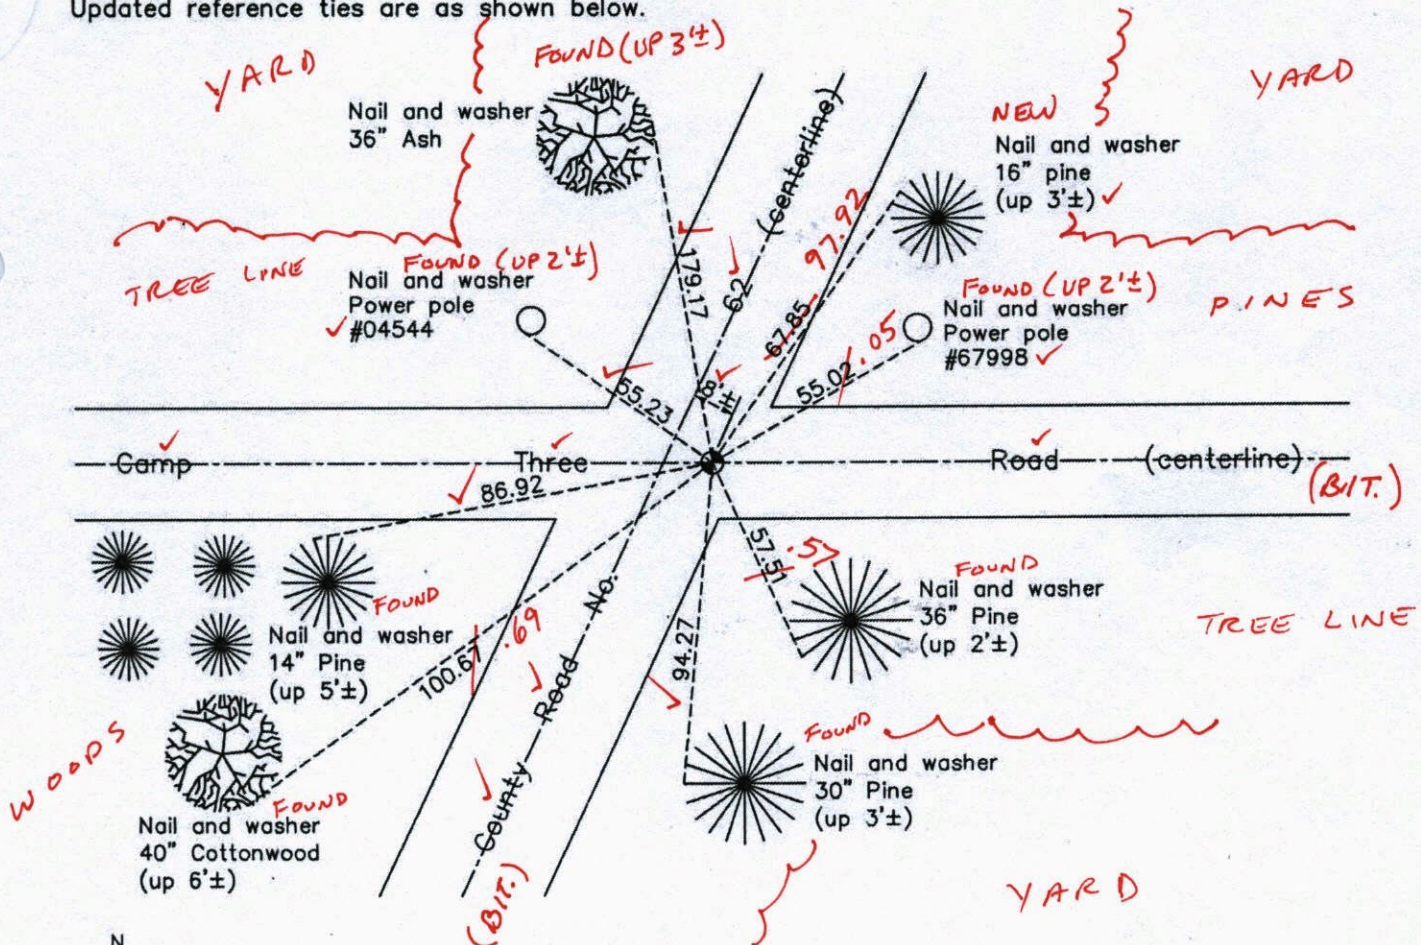 Updated reference ties are as shown below.
YARD
FOUND (UP 3'±)
YARD
Nail and washer
36" Ash
(centerline)
NEW
Nail and washer
16" pine
(up 3'±)
97.92
179.17
62
TREE LINE
FOUND (UP 2'±)
Nail and washer
Power pole
#04544
FOUND (UP 2'±)
Nail and washer
Power pole
#67998
PINES
67.85
.05
55.02
55.23
18'±
Camp Three Road (centerline)
(BIT.)
86.92
57.51
.57
FOUND
Nail and washer
36" Pine
(up 2'±)
TREE LINE
FOUND
Nail and washer
14" Pine
(up 5'±)
.69
100.67
94.27
County Road No.
(BIT.)
WOODS
FOUND
Nail and washer
40" Cottonwood
(up 6'±)
FOUND
Nail and washer
30" Pine
(up 3'±)
YARD
N